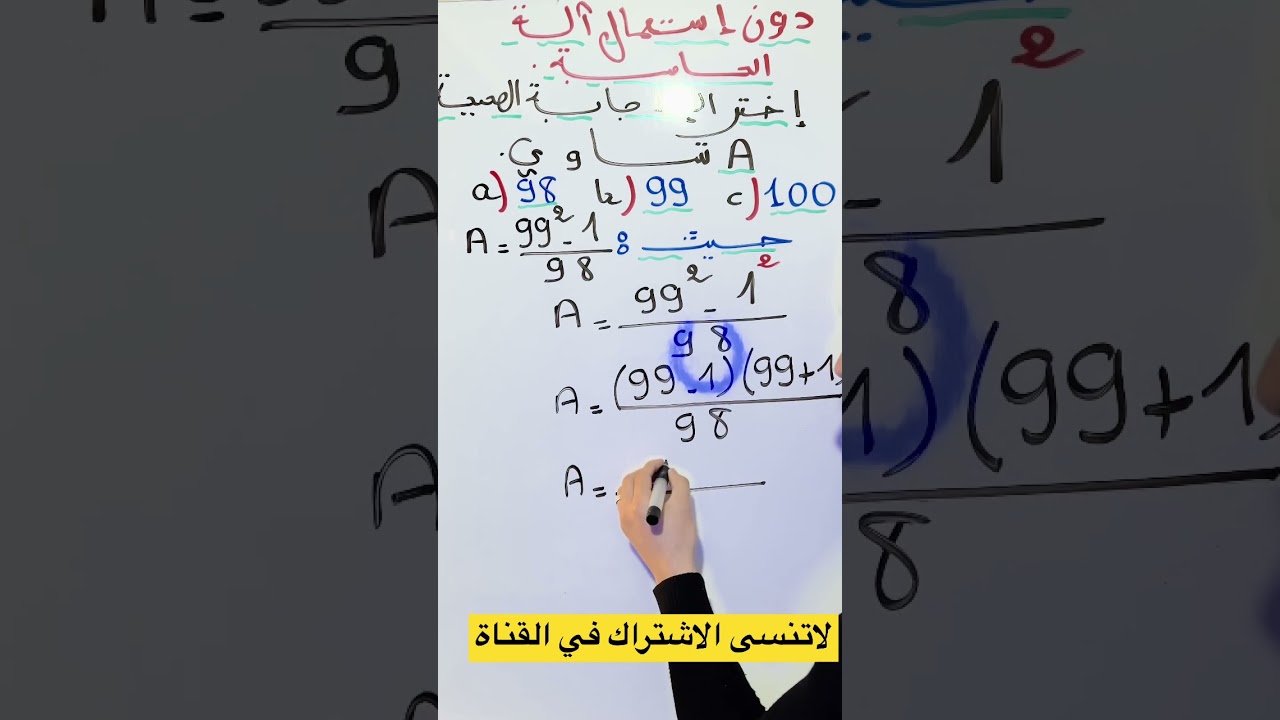 دون إستعمال آلة
الحاسبة.
إختر الإجابة الصحيحة
A تساوي.
a) 98 b) 99 c) 100
حيث : A = 99² - 1 / 98
A = 99² - 1² / 98
A = (99 - 1)(99 + 1) / 98
A =
لاتنسى الاشتراك في القناة